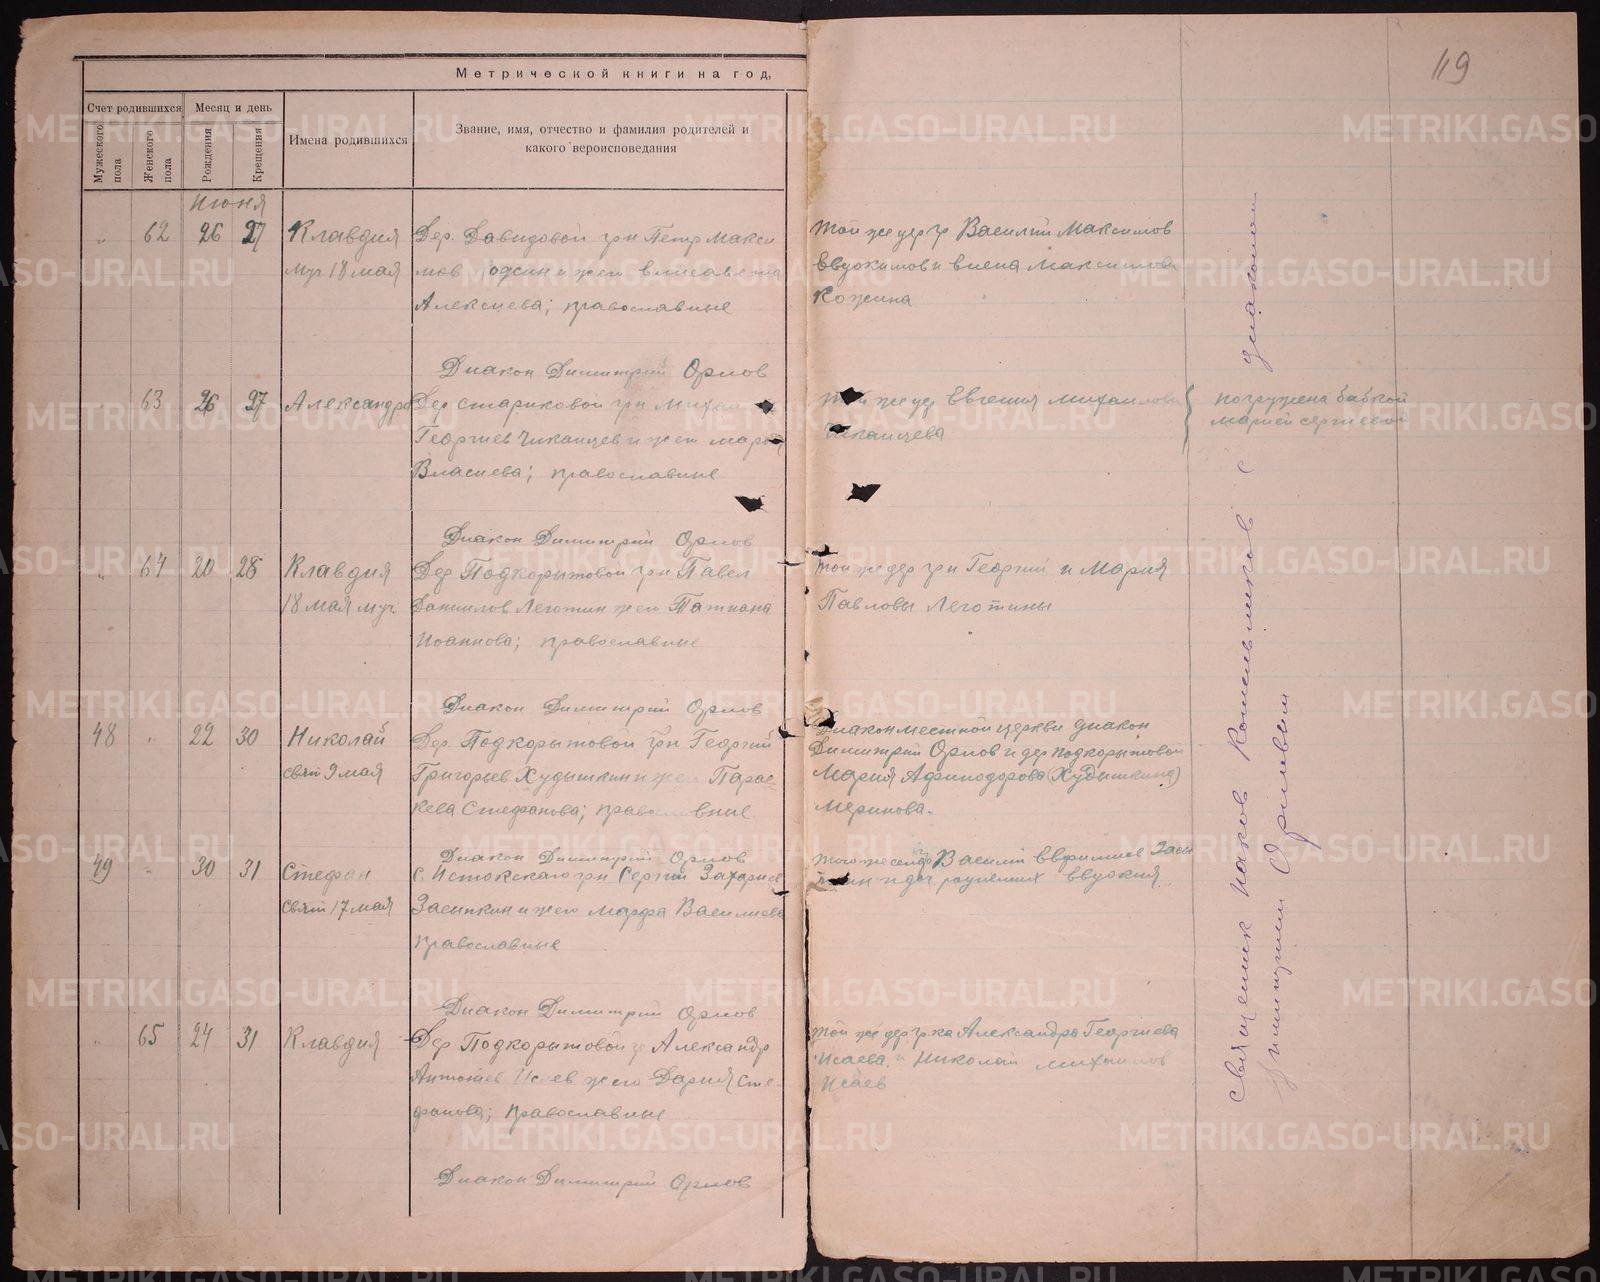 119
Метрической книги на год,
Счет родившихся
Месяц и день
Имена родившихся
Звание, имя, отчество и фамилия родителей и
какого вероисповедания
Мужеского пола
Женского пола
Рождения
Крещения
Июня
" 62 26 27 Клавдия
муч 18 мая
Дер. Давидовой грн Петр Макси
мов и жен Елисавета
Алексиева; православные
Той же дер гр Василий Максимов
Евдокимов и Елена Максимова
Кожина
Диакон Димитрий Орлов
63 26 27 Александра
Дер Стариковой грн Михаил
Георгиев Чиканцев и жен Мария
Власиева; православные
Той же дер Евгения Михаилова
Чиканцева
погружена бабкой
Марией Сергиевой
Диакон Димитрий Орлов
" 64 20 28 Клавдия
18 мая муч.
Дер Подкорытовой грн Павел
Даниилов Леготин жен Татиана
Иоаннова; православные
Той же дер грн Георгий и Мария
Павловы Леготины
Диакон Димитрий Орлов
48 " 22 30 Николай
свят 9 мая
Дер. Подкорытовой грн Георгий
Григорьев Худышкин и жен Парас-
кева Стефанова; православные
Диакон местной церкви диакон
Димитрий Орлов и дер Подкорытовой
Мария Афинодорова (Худышкина)
Меринова.
Диакон Димитрий Орлов
49 " 30 31 Стефан
свят 17 мая
С. Истокскаго грн Сергий Захариев
Засыпкин и жен Марфа Василиева
православные
Того же села Василий Засы
Евдокия
Диакон Димитрий Орлов
" 65 24 31 Клавдия
Дер Подкорытовой гр Александр
Исаев жен Дария Сте-
фанова; православные
Той же дер гр-ка Александра Георгиева
Исаева и Николай Михаилов
Исаев
Диакон Димитрий Орлов
Священник Иаков Котельников с диаконом
Димитрием Орловым
METRIKI.GASO-URAL.RU